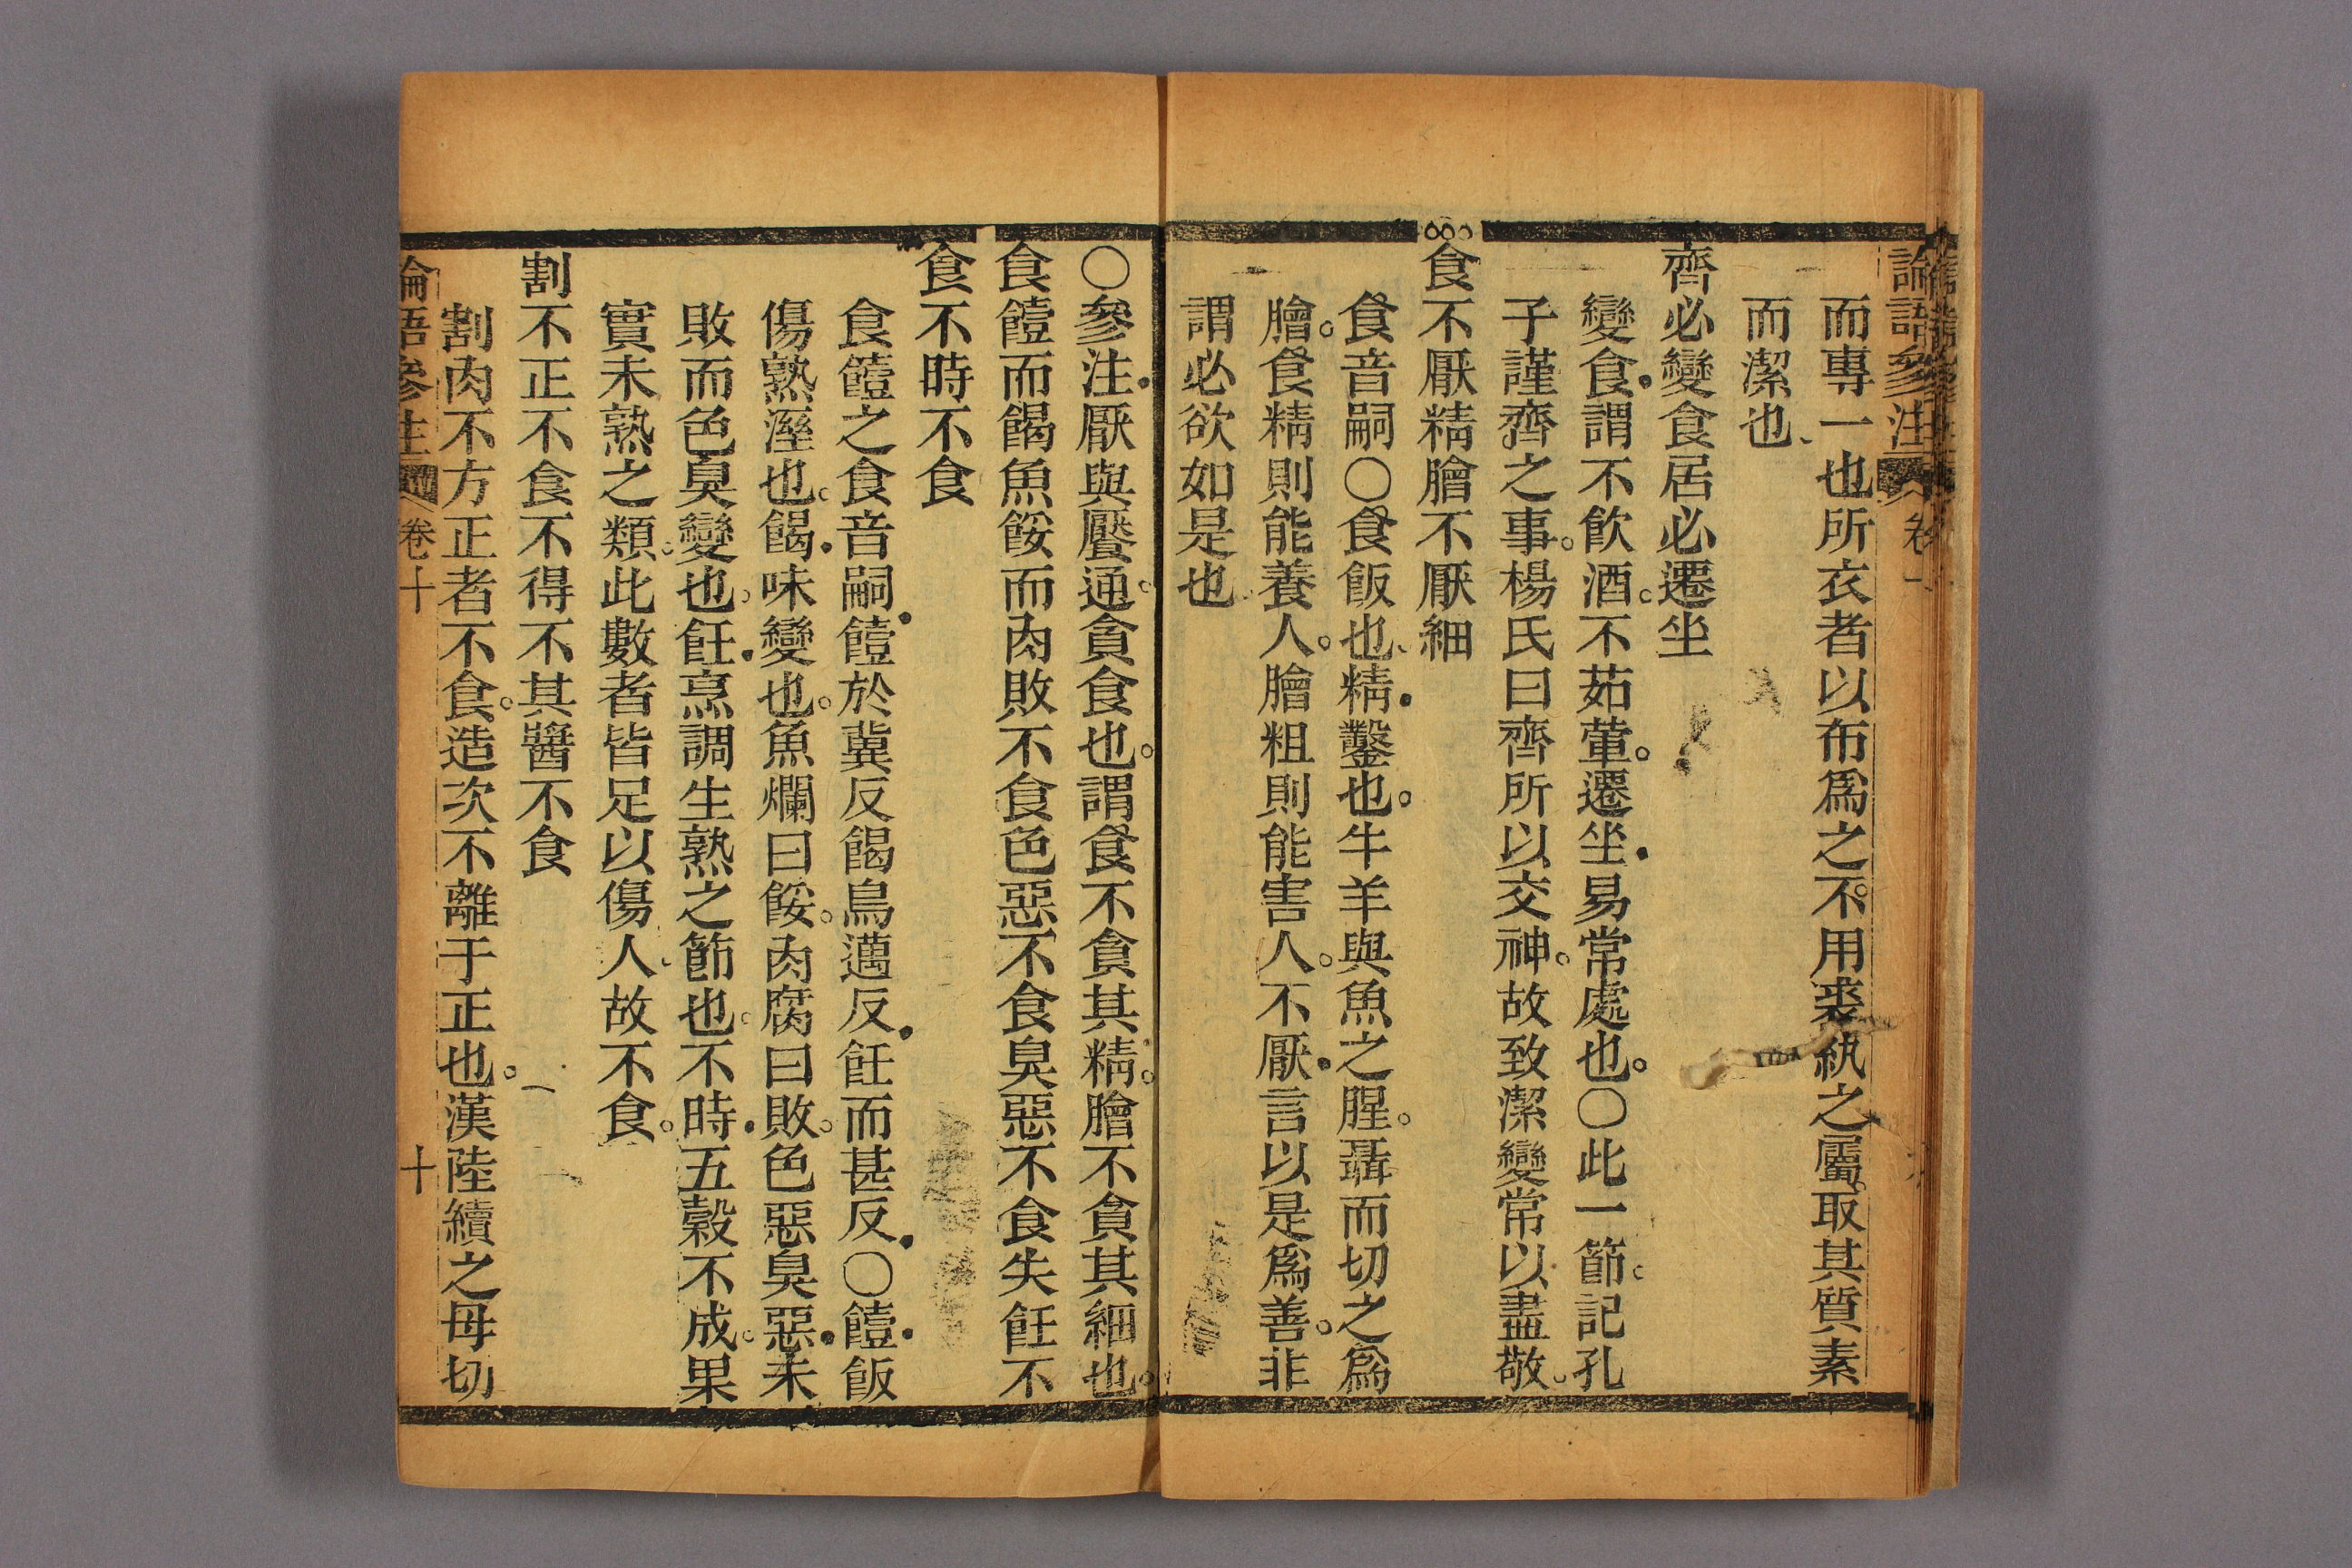 論語參注 卷十
而專一也所衣者以布爲之。不用裘紈之屬。取其質素
而潔也、
齊必變食居必遷坐
變食·謂不飲酒。不茹葷。遷坐·易常處也。○此一節。記孔
子謹齊之事。楊氏曰齊所以交神。故致潔變常以盡敬。
食不厭精膾不厭細
食音嗣○食飯也、精·鑿也。牛羊與魚之腥。聶而切之爲
膾。食精則能養人。膾粗則能害人。不厭·言以是爲善。非
謂必欲如是也
○參注·厭與饜通。貪食也。謂食不貪其精。膾不貪其細也。
食饐而餲魚餒而肉敗不食色惡不食臭惡不食失飪不
食不時不食
食饐之食音嗣·饐於冀反餲烏邁反·飪而甚反·○饐·飯
傷熟溼也。餲·味變也。魚爛曰餒。肉腐曰敗。色惡臭惡·未
敗而色臭變也。飪·烹調生熟之節也。不時·五穀不成。果
實未熟之類。此數者皆足以傷人、故不食。
割不正不食不得不其醬不食
割肉不方正者不食。造次不離于正也。漢陸續之母切
論語參注 卷十 十